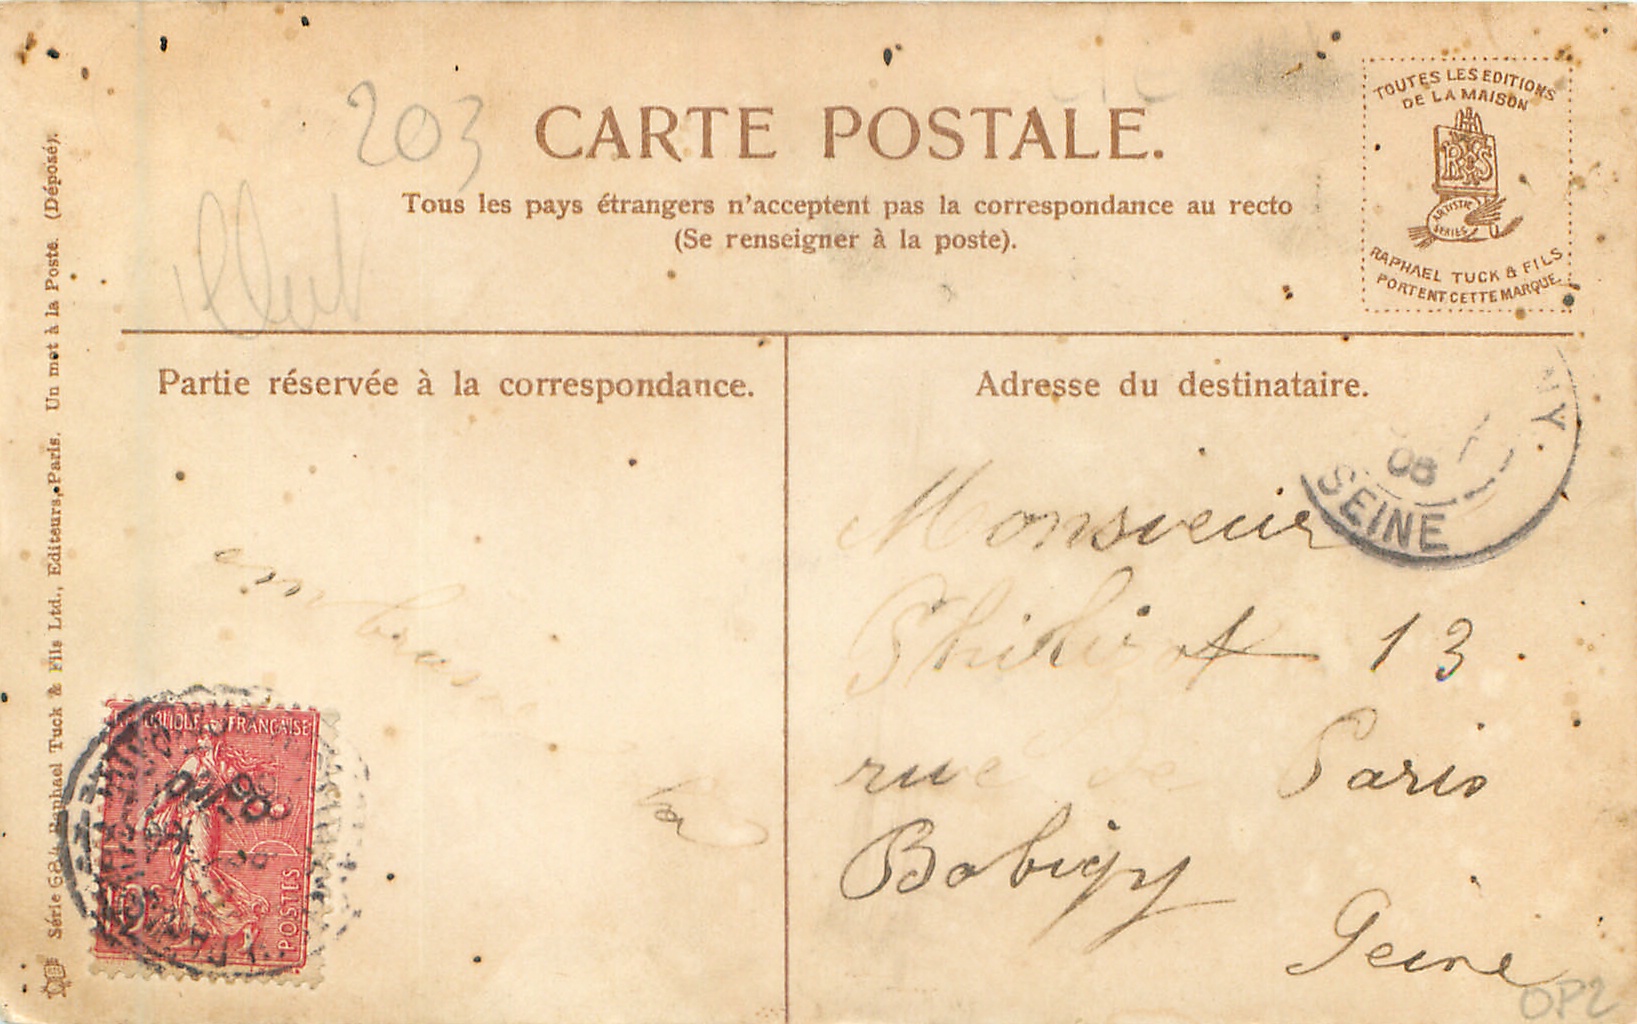 203
CARTE POSTALE.
Tous les pays étrangers n'acceptent pas la correspondance au recto
(Se renseigner à la poste).
TOUTES LES EDITIONS
DE LA MAISON
R T S
ARTISTIC
SERIES
RAPHAEL TUCK & FILS
PORTENT CETTE MARQUE.
Série 684 Raphael Tuck & Fils Ltd., Editeurs, Paris. Un mot à la Poste. (Déposé).
Partie réservée à la correspondance.
Adresse du destinataire.
NY
08
SEINE
Monsieur
13
embrasse
rue de Paris
Bobigny
Seine
FRANÇAISE
POSTES
OP2